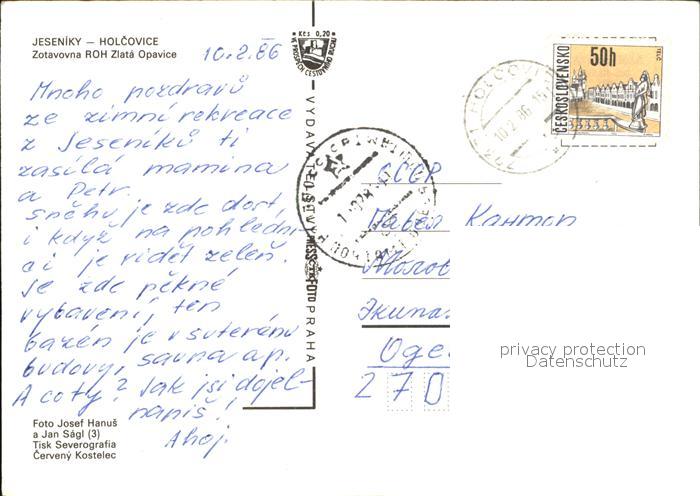 JESENÍKY — HOLČOVICE
Zotavovna ROH Zlatá Opavice
10.2.86
Mnoho pozdravů
ze zimní rekreace
z Jeseníků ti
zasílá mamina
a Petr.
Sněhu je zde dost,
i když na pohledni-
ci je vidět zeleň.
Je zde pěkné
vybavení, ten
bazén je v suterénu
budovy, sauna ap.
A co ty? Jak jsi dojel-
napiš!
Ahoj.
Foto Josef Hanuš
a Jan Ságl (3)
Tisk Severografia
Červený Kostelec
Kčs 0,20
VE PROSPĚCH CESTOVNÍHO RUCHU
PRESSFOTO PRAHA
HOLČOVICE
10.2.86
ČESKOSLOVENSKO
50h
TELČ
СССР
Павел Кантоп
Экипа
Оде
270
privacy protection
Datenschutz